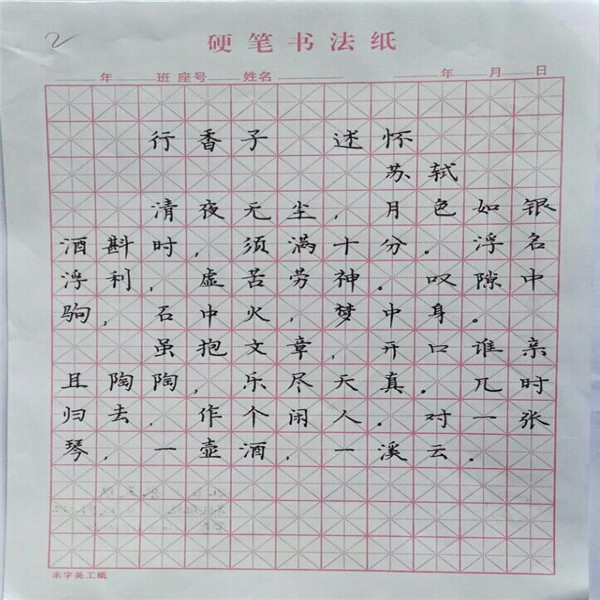 2
硬笔书法纸
年 班 座号 姓名 年 月 日
行香子 述怀
苏轼
清夜无尘,月色如银
酒斟时,须满十分.浮名
浮利,虚苦劳神.叹隙中
驹,石中火,梦中身.
虽抱文章,开口谁亲
且陶陶,乐尽天真.几时
归去,作个闲人.对一张
琴,一壶酒,一溪云.
米字美工纸